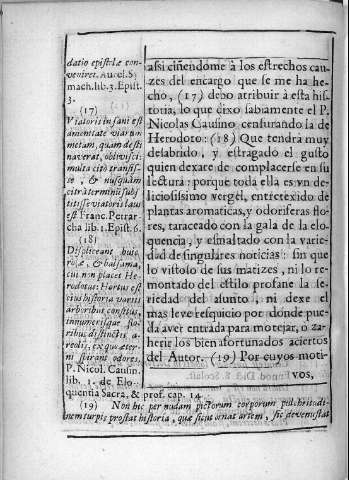 datio epistolæ con-
veniret. Aurel. Sy
mach. lib. 3. Epist.
3.
(17)
Viatoris insani est
amentate viarum
metam, quam desti
naverat, oblivisci:
multa citò transsis-
se, & nusquam
citrà terminũ sub-
stitisse viatoris laus
est Franc. Petrar
cha lib. 1. Epist. 6.
(18)
Displiceant huic
rosæ, & balsama,
cui non placet He-
rodotus: Hortus est
eius historia variis
arboribus consitus,
innumerisque flo-
ribus distinctis a-
reolis, ex quæ æter-
ni spirant odores.
P. Nicol. Causin.
lib. 1. de Elo
quentia Sacra, & prof. cap. 14.
assi ciñendome à los estrechos cau-
zes del encargo que se me ha he-
cho, (17) debo atribuir à esta his-
toria, lo que dixo sabiamente el P.
Nicolas Causino censurando la de
Herodoto: (18) Que tendrà muy
desabrido, y estragado el gusto
quien dexare de complacerse en su
lectura: porque toda ella es vn de-
liciosissimo vergèl, entretexido de
plantas aromaticas, y odoriferas flo-
res, taraceado con la gala de la elo-
quencia, y esmaltado con la varie-
dad de singulares noticias: sin que
lo vistoso de sus matizes, ni lo re-
montado del estilo profane la se-
riedad del asunto, ni dexe el
mas leve resquicio por donde pue-
da aver entrada para motejar, o za-
herir los bien afortunados aciertos
del Autor. (19) Por cuyos moti-
vos,
(19) Non hic per nudam pictorum corporum pulchritudi-
nem turpis prostat historia, quæ sicut ornat artem, sic devenustat